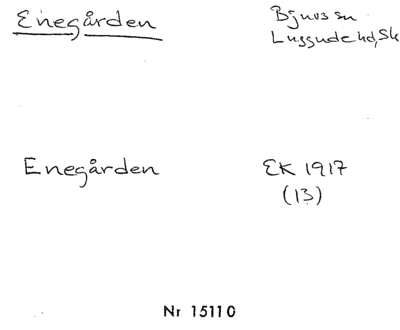 Enegården
Bjuvs sn
Luggude hd, Sk
Enegården
EK 1917
(13)
Nr 15110